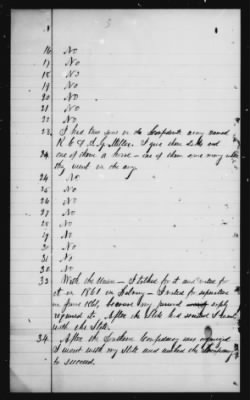 3
16 No
17 No
18 No
19 No
20 No
21 No
21 No
22 No
23. I has two sons in the Confederate army named
R. C. & A. G. Miller. I give them clothes and
one of them a horse – one of them some money when
they went in the army.
24 No
25 No
26 No
27 No
28 No
29 No
30 No
31 No
31 No
32 No
33. With the Union – I talked for it and voted for
it in 1861 in February – I voted for seperation
in June 1861, because my personal safety
required it. After the State had seceded I went
with the State.
34. After the Southern Confederacy was organized
I went with my State and wanted the Confederacy
to succeed.